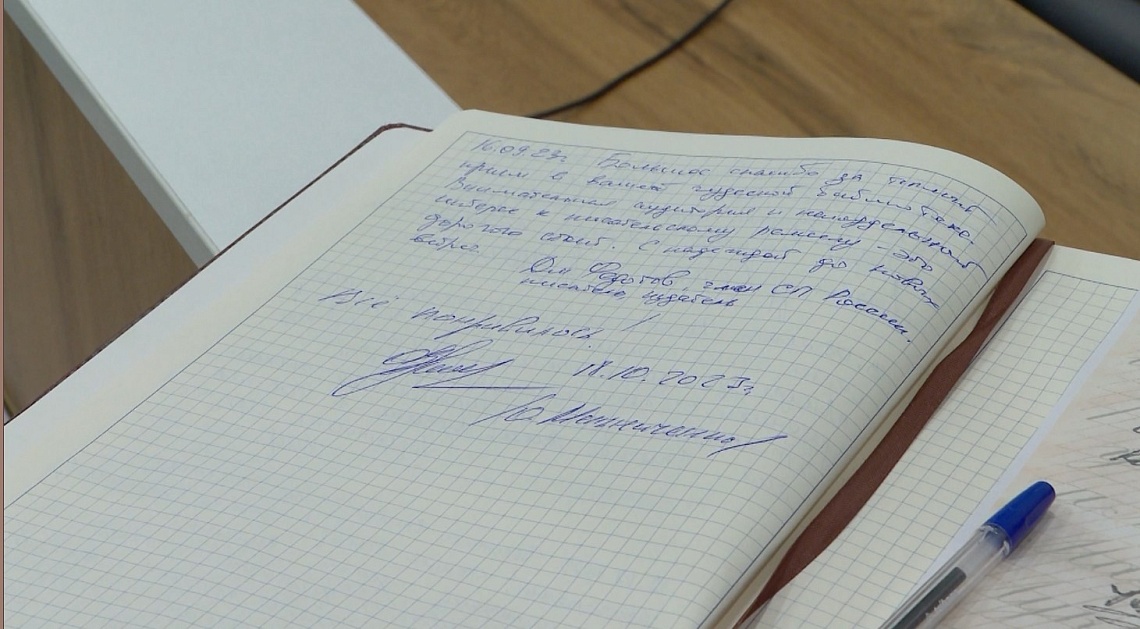 16.09.23г. Большое спасибо за теплый
прием в вашей чудесной библиотеке.
Внимательная аудитория и неподдельный
интерес к писательскому ремеслу - это
дорогого стоит. С надеждой до новых
встреч
Дм Федотов, член СП России.
писатель, издатель
Всё понравилось!
18.10.2023г.